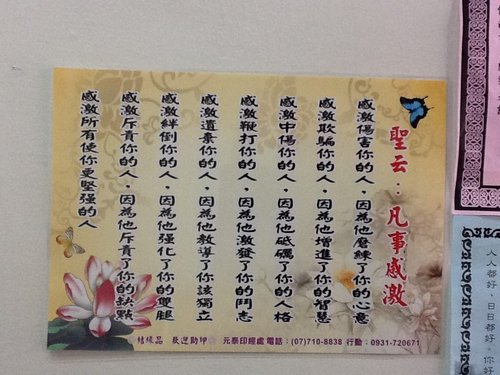 聖云：凡事感激
感激傷害你的人，因為他磨練了你的心意
感激欺騙你的人，因為他增進了你的智慧
感激中傷你的人，因為他砥礪了你的人格
感激鞭打你的人，因為他激發了你的鬥志
感激遺棄你的人，因為他教導了你該獨立
感激絆倒你的人，因為他強化了你的雙腿
感激斥責你的人，因為他斥責了你的缺點
感激所有使你更堅強的人
結緣品 歡迎助印 元泰印經處 電話：(07)710-8838 行動：0931-720671
人人都好 日日都好 你好